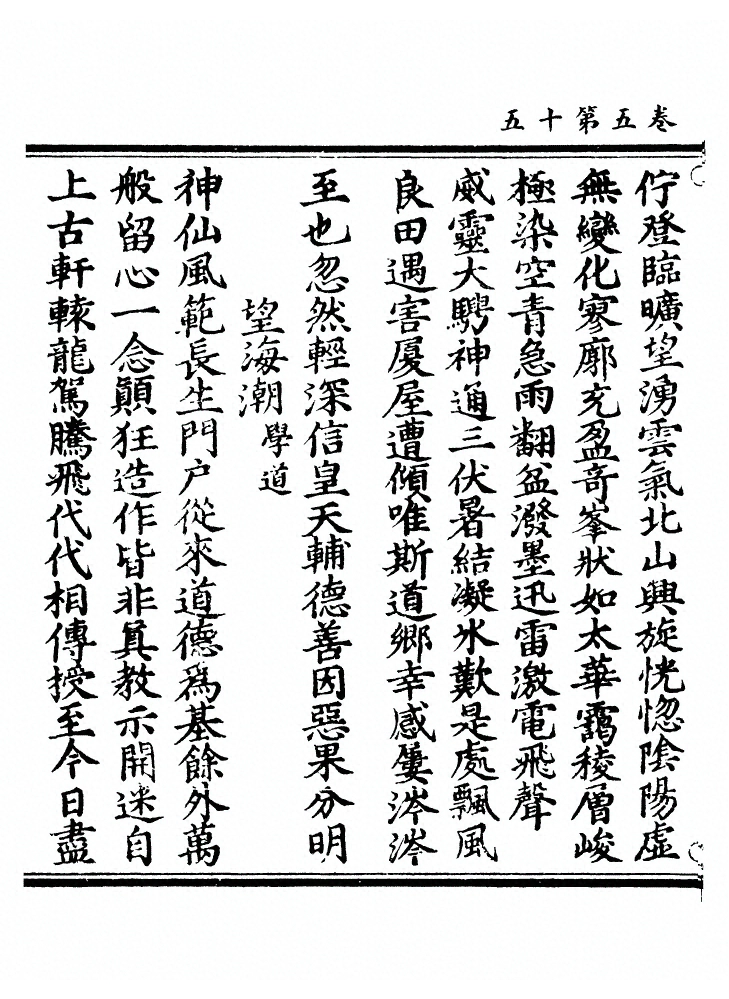 卷五第十五
佇登臨曠望湧雲氣北山興旋恍惚陰陽虛
無變化寥廓充盈竒峯狀如太華靄稜層峻
極染空青急雨翻盆潑墨迅雷激電飛聲
威靈大騁神通三伏暑結凝氷歎是處飄風
良田遇害厦屋遭傾唯斯道鄉幸感簍涔涔
至也忽然輕深信皇天輔德善因惡果分明
望海潮學道
神仙風範長生門户從來道德爲基餘外萬
般留心一念顛狂造作皆非真教示開迷自
上古軒轅龍駕騰飛代代相傳授至今日盡